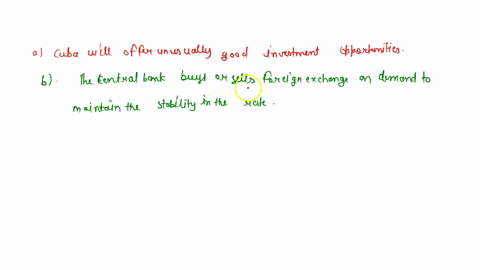 a) Cuba will offer unusually good investment opportunities.
b). The Central bank buys or sells foreign exchange on demand to
maintain the stability in the rate.